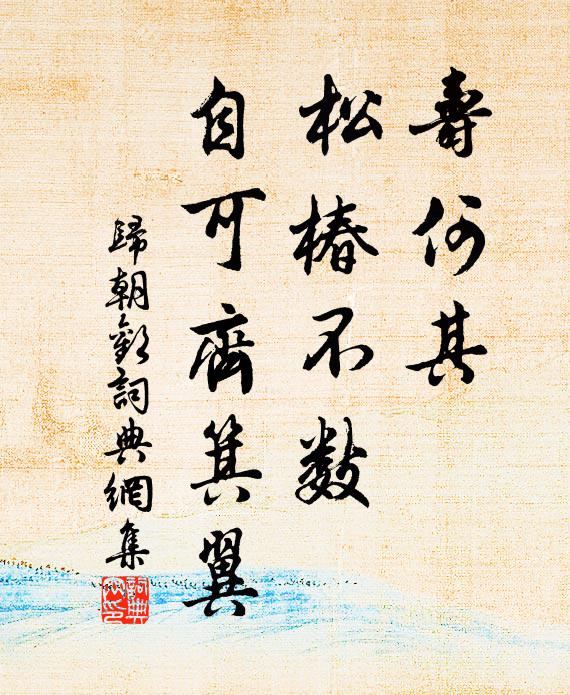 壽何其
松椿不數
自可齊箕翼
歸朝歡詞典網集